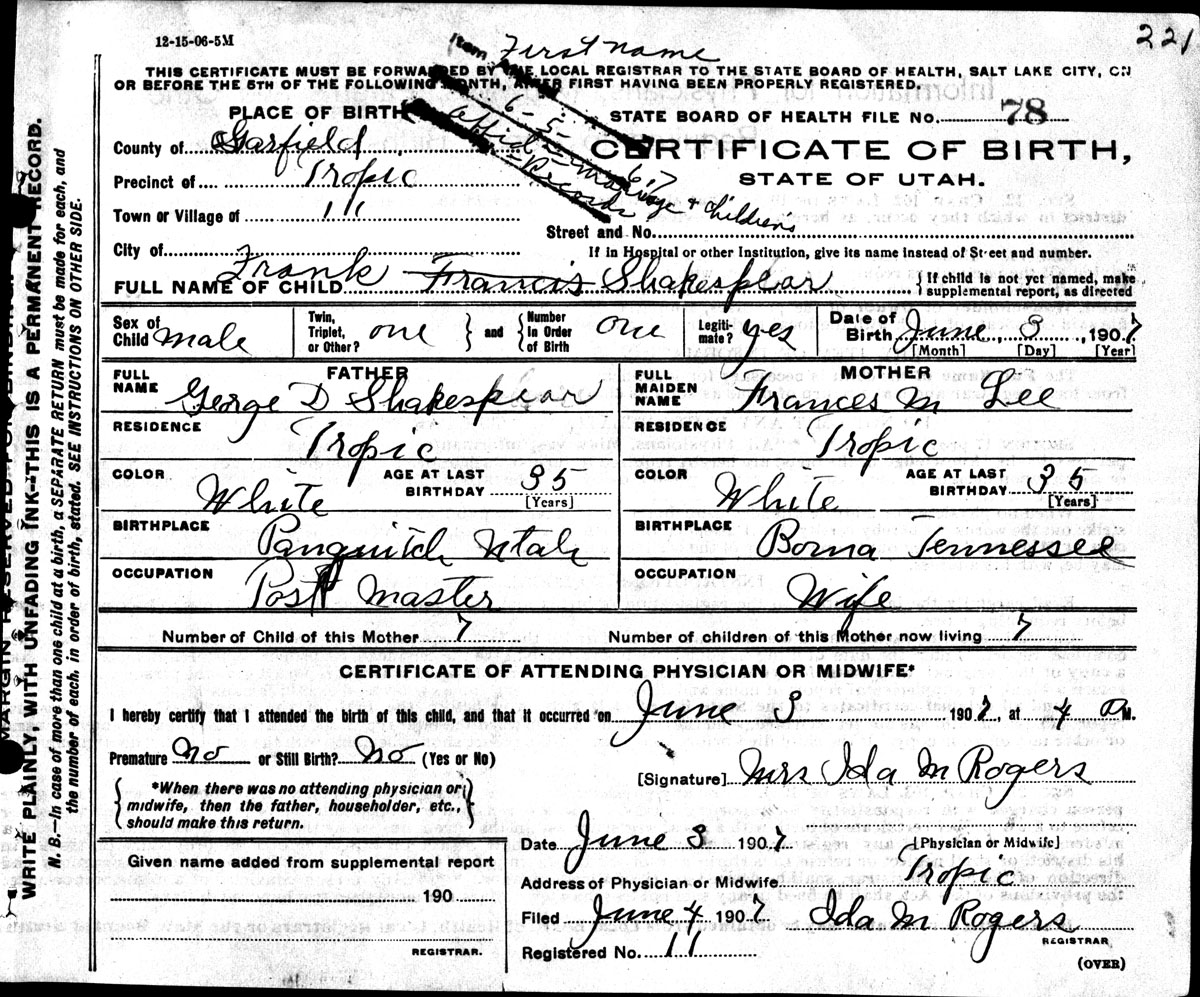 12-15-06-5M
221
Item First name
THIS CERTIFICATE MUST BE FORWARDED BY THE LOCAL REGISTRAR TO THE STATE BOARD OF HEALTH, SALT LAKE CITY, ON
OR BEFORE THE 5TH OF THE FOLLOWING MONTH, AFTER FIRST HAVING BEEN PROPERLY REGISTERED.
6-5-67
PLACE OF BIRTH
STATE BOARD OF HEALTH FILE NO. 78
County of Garfield
CERTIFICATE OF BIRTH,
Precinct of Tropic
STATE OF UTAH.
Marriage & Children's
Records
Town or Village of 11
Street and No.
City of
If in Hospital or other Institution, give its name instead of Street and number.
FULL NAME OF CHILD Frank Francis Shakespear { If child is not yet named, make supplemental report, as directed
Sex of Child male Twin, Triplet, or Other? one } and { Number in Order of Birth one Legiti-mate? yes Date of Birth June 3, 1907
[Month] [Day] [Year]
FATHER
FULL NAME George D Shakespear
RESIDENCE Tropic
COLOR White AGE AT LAST BIRTHDAY 35 [Years]
BIRTHPLACE Panguitch Utah
OCCUPATION Post Master
MOTHER
FULL MAIDEN NAME Frances M Lee
RESIDENCE Tropic
COLOR White AGE AT LAST BIRTHDAY 35 [Years]
BIRTHPLACE Boma Tennessee
OCCUPATION Wife
Number of Child of this Mother 7 Number of children of this Mother now living 7
CERTIFICATE OF ATTENDING PHYSICIAN OR MIDWIFE*
I hereby certify that I attended the birth of this child, and that it occurred on June 3 1907, at 4 M.
Premature No or Still Birth? No (Yes or No)
[Signature] Mrs Ida M Rogers
{ *When there was no attending physician or midwife, then the father, householder, etc., should make this return. }
Date June 3 1907 [Physician or Midwife]
Given name added from supplemental report
190
REGISTRAR.
Address of Physician or Midwife Tropic
Filed June 4 1907 Ida M Rogers
REGISTRAR
Registered No. 11
(OVER)
MARGIN RESERVED FOR BINDING
WRITE PLAINLY, WITH UNFADING INK—THIS IS A PERMANENT RECORD.
N. B.—In case of more than one child at a birth, a SEPARATE RETURN must be made for each, and
the number of each, in order of birth, stated. SEE INSTRUCTIONS ON OTHER SIDE.